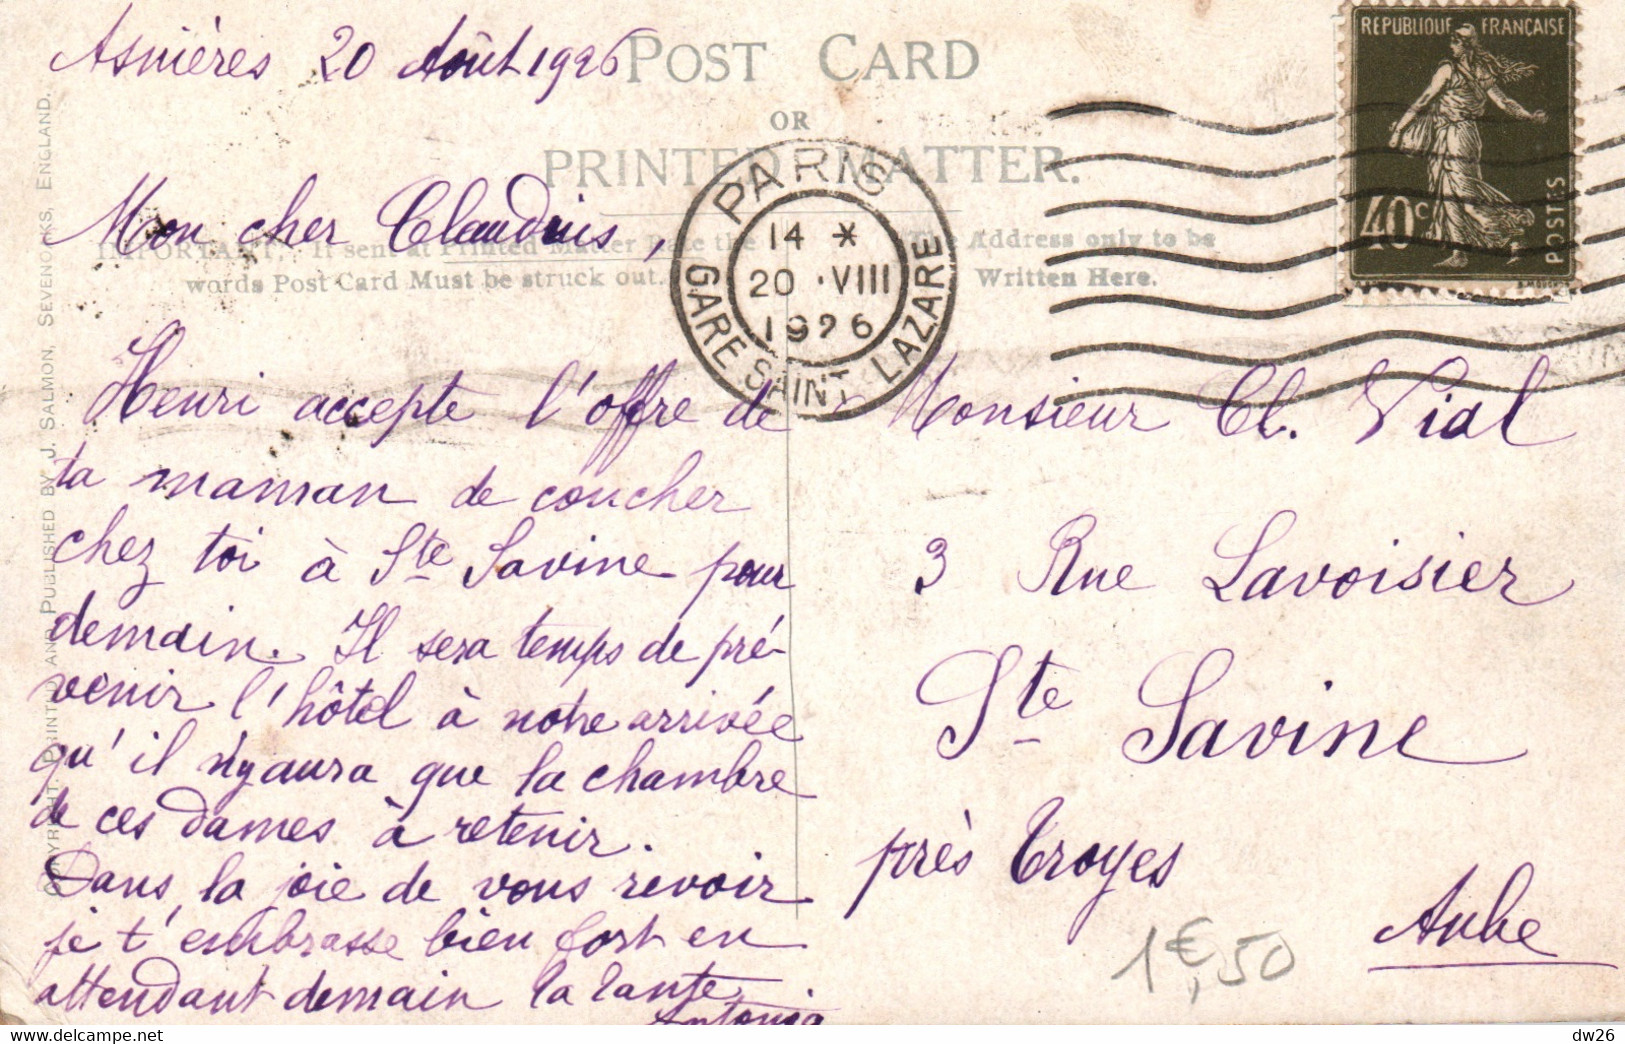 Asnières 20 Août 1926
POST CARD
OR
PRINTED MATTER.
IMPORTANT. If sent at Printed Matter Rate the
words Post Card Must be struck out.
The Address only to be
Written Here.
REPUBLIQUE FRANÇAISE
40c
POSTES
PARIS
14 *
20 · VIII
1926
GARE SAINT LAZARE
Mon cher Claudius,
Henri accepte l'offre de
ta maman de coucher
chez toi à Ste Savine pour
demain. Il sera temps de pré-
venir l'hôtel à notre arrivée
qu'il n'y aura que la chambre
de ces dames à retenir.
Dans la joie de vous revoir
je t'embrasse bien fort en
attendant demain ta tante
Antonia
Monsieur Cl. Vial
3 Rue Lavoisier
Ste Savine
près Troyes
Aube
1€,50
COPYRIGHT. PRINTED AND PUBLISHED BY J. SALMON, SEVENOAKS, ENGLAND.
www.delcampe.net
dw26